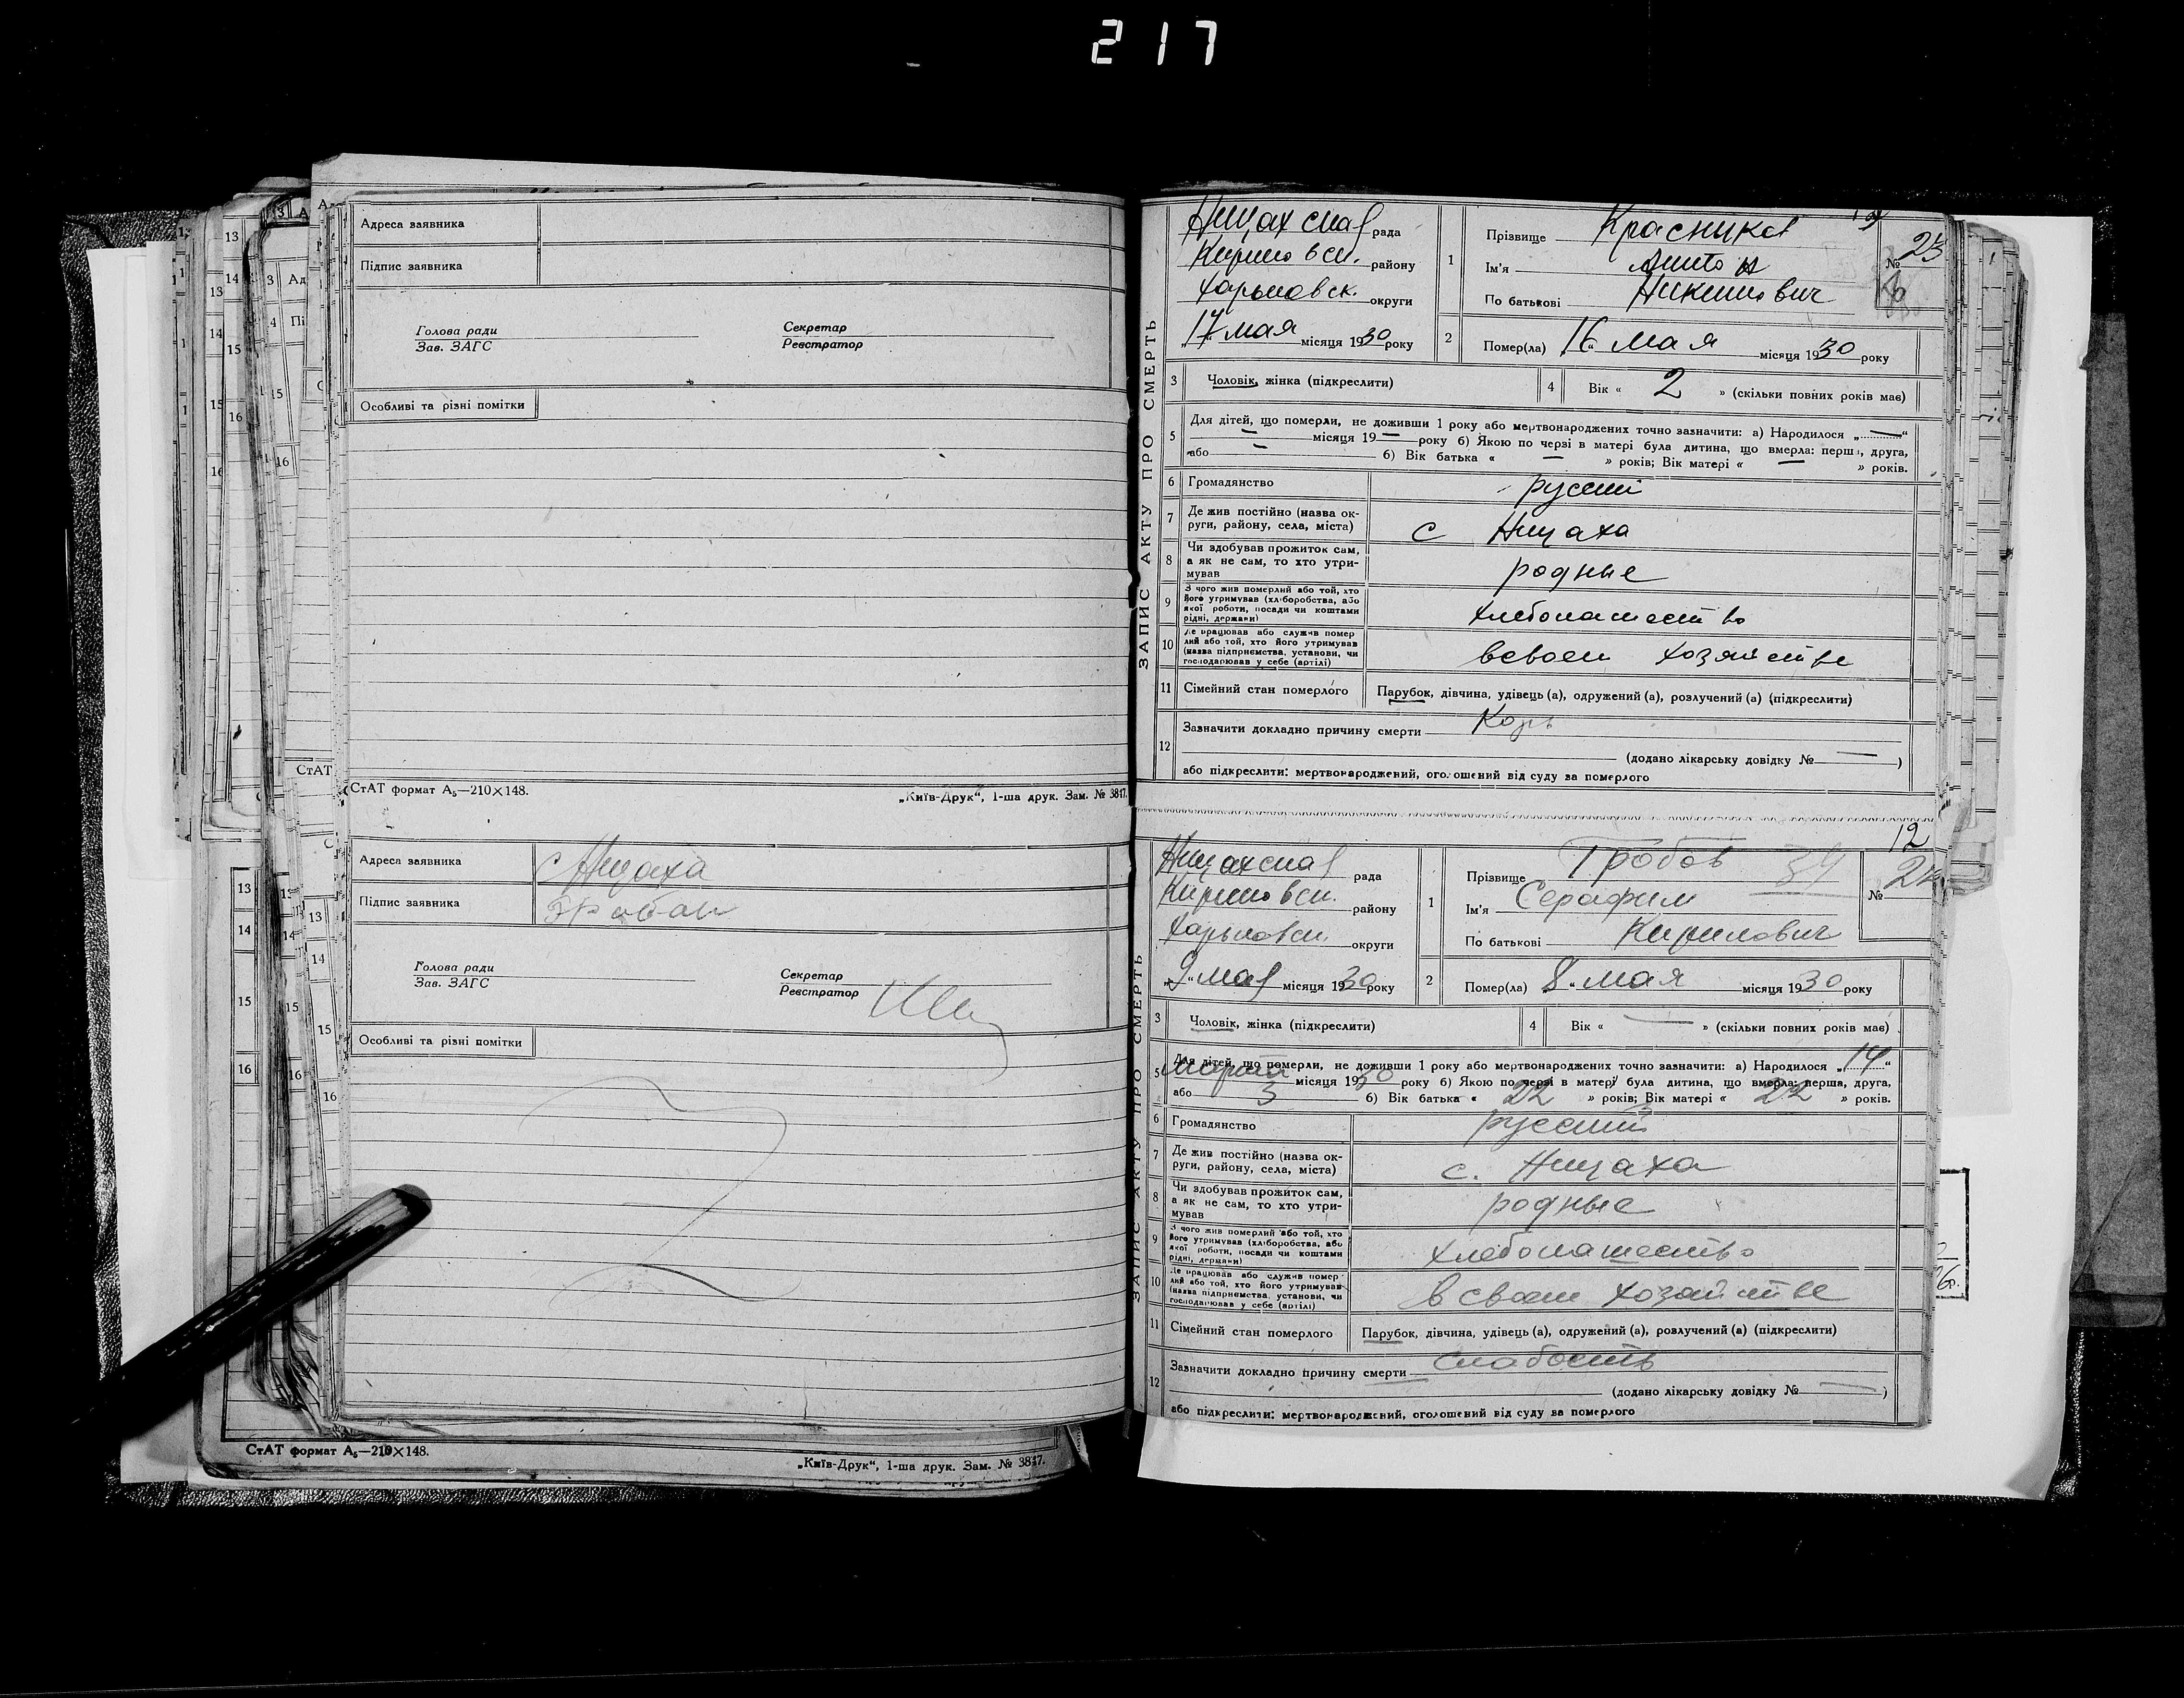 217
Адреса заявника
Підпис заявника
Голова ради
Зав. ЗАГС
Секретар
Реєстратор
Особливі та різні помітки
СтАТ формат А₅—210×148.
„Київ-Друк“, 1-ша друк. Зам. № 3817.
Адреса заявника с Ницаха
Підпис заявника
Голова ради
Зав. ЗАГС
Секретар
Реєстратор
Особливі та різні помітки
СтАТ формат А₅—210×148.
„Київ-Друк“, 1-ша друк. Зам. № 3817.
ЗАПИС АКТУ ПРО СМЕРТЬ
Ницахская рада
Кириковск. району
Харьковск. округи
„17“ мая місяця 1930 року
1 Прізвище Красников
Ім'я Антон
По батькові Никитович
№ 23
2 Помер(ла) „16“ мая місяця 1930 року
3 Чоловік, жінка (підкреслити)
4 Вік « 2 » (скільки повних років має)
5 Для дітей, що померли, не доживши 1 року або мертвонароджених точно зазначити: а) Народилося „—“
— місяця 19— року б) Якою по черзі в матері була дитина, що вмерла: перша, друга,
або — б) Вік батька « — » років; Вік матері « — » років.
6 Громадянство русский
7 Де жив постійно (назва округи, району, села, міста) с Ницаха
8 Чи здобував прожиток сам, а як не сам, то хто утримував родные
9 З чого жив померлий або той, хто його утримував (хліборобства, або якої роботи, посади чи коштами рідні, держави) хлебопашество
10 Де працював або служив померлий або той, хто його утримував (назва підприємства, установи, чи господарював у себе (артілі) в своем хозяйстве
11 Сімейний стан померлого Парубок, дівчина, удівець (а), одружений (а), розлучений (а) (підкреслити)
12 Зазначити докладно причину смерти Корь
(додано лікарську довідку № — )
або підкреслити: мертвонароджений, оголошений від суду за померлого
12
ЗАПИС АКТУ ПРО СМЕРТЬ
Ницахская рада
Кириковск. району
Харьковск. округи
„9“ мая місяця 1930 року
1 Прізвище Гробов 34
Ім'я Серафим
По батькові Кирилович
№ 24
2 Помер(ла) „8“ мая місяця 1930 року
3 Чоловік, жінка (підкреслити)
4 Вік « — » (скільки повних років має)
5 Для дітей, що померли, не доживши 1 року або мертвонароджених точно зазначити: а) Народилося „14“
марта місяця 1930 року б) Якою по черзі в матері була дитина, що вмерла: перша, друга,
або 3 б) Вік батька « 22 » років; Вік матері « 22 » років.
6 Громадянство русский
7 Де жив постійно (назва округи, району, села, міста) с. Ницаха
8 Чи здобував прожиток сам, а як не сам, то хто утримував родные
9 З чого жив померлий або той, хто його утримував (хліборобства, або якої роботи, посади чи коштами рідні, держави) хлебопашество
10 Де працював або служив померлий або той, хто його утримував (назва підприємства, установи, чи господарював у себе (артілі) в своем хозяйстве
11 Сімейний стан померлого Парубок, дівчина, удівець (а), одружений (а), розлучений (а) (підкреслити)
12 Зазначити докладно причину смерти слабость
(додано лікарську довідку № — )
або підкреслити: мертвонароджений, оголошений від суду за померлого